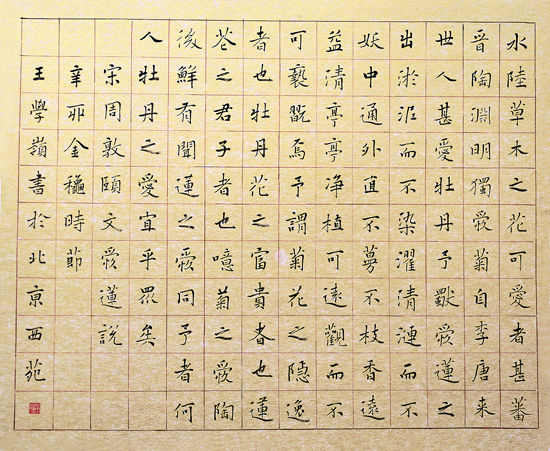 水陸草木之花可愛者甚蕃
晉陶淵明獨愛菊自李唐来
世人甚愛牡丹予獸愛蓮之
出淤泥而不染濯清漣而不
妖中通外直不蔓不枝香遠
益清亭亭净植可遠觀而不
可褻翫焉予謂菊花之隱逸
者也牡丹花之富貴者也蓮
花之君子者也噫菊之愛陶
後鮮有聞蓮之愛同予者何
人牡丹之愛宜乎眾矣
宋周敦頤文愛蓮說
辛卯金穐時節
王學嶺書於北亰西苑